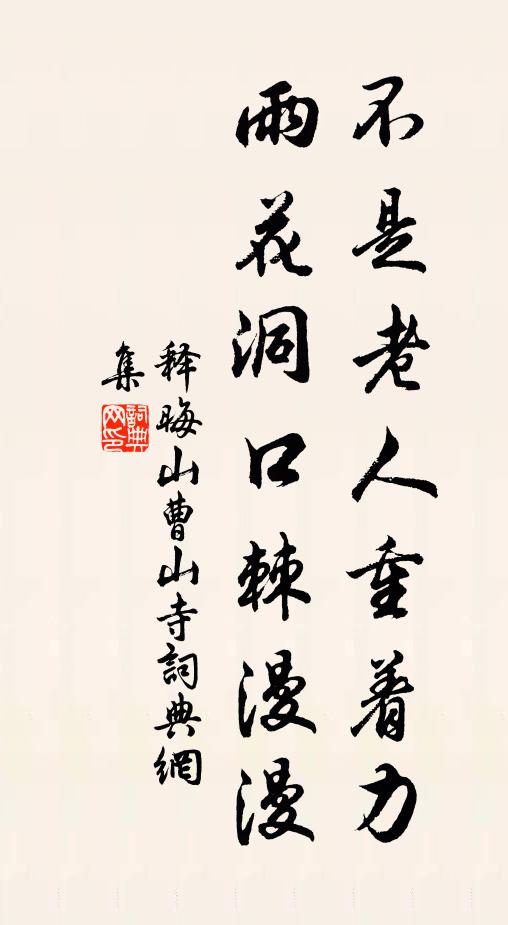 不是老人重着力
雨花洞口棘漫漫
释晦山曹山寺詞典網
集
詞典
网印